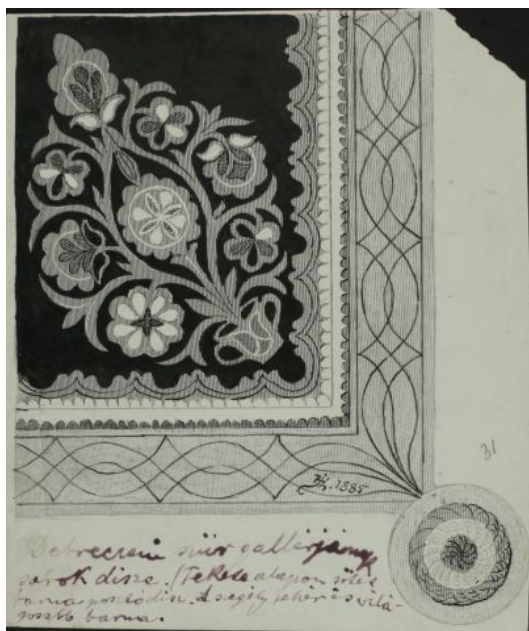 31
1885
Debreczeni szűr gallérjának
sarok disze. (Fekete alapon sötét
barna posztódisz. A szegély fehér és vilá-
gosabb barna.